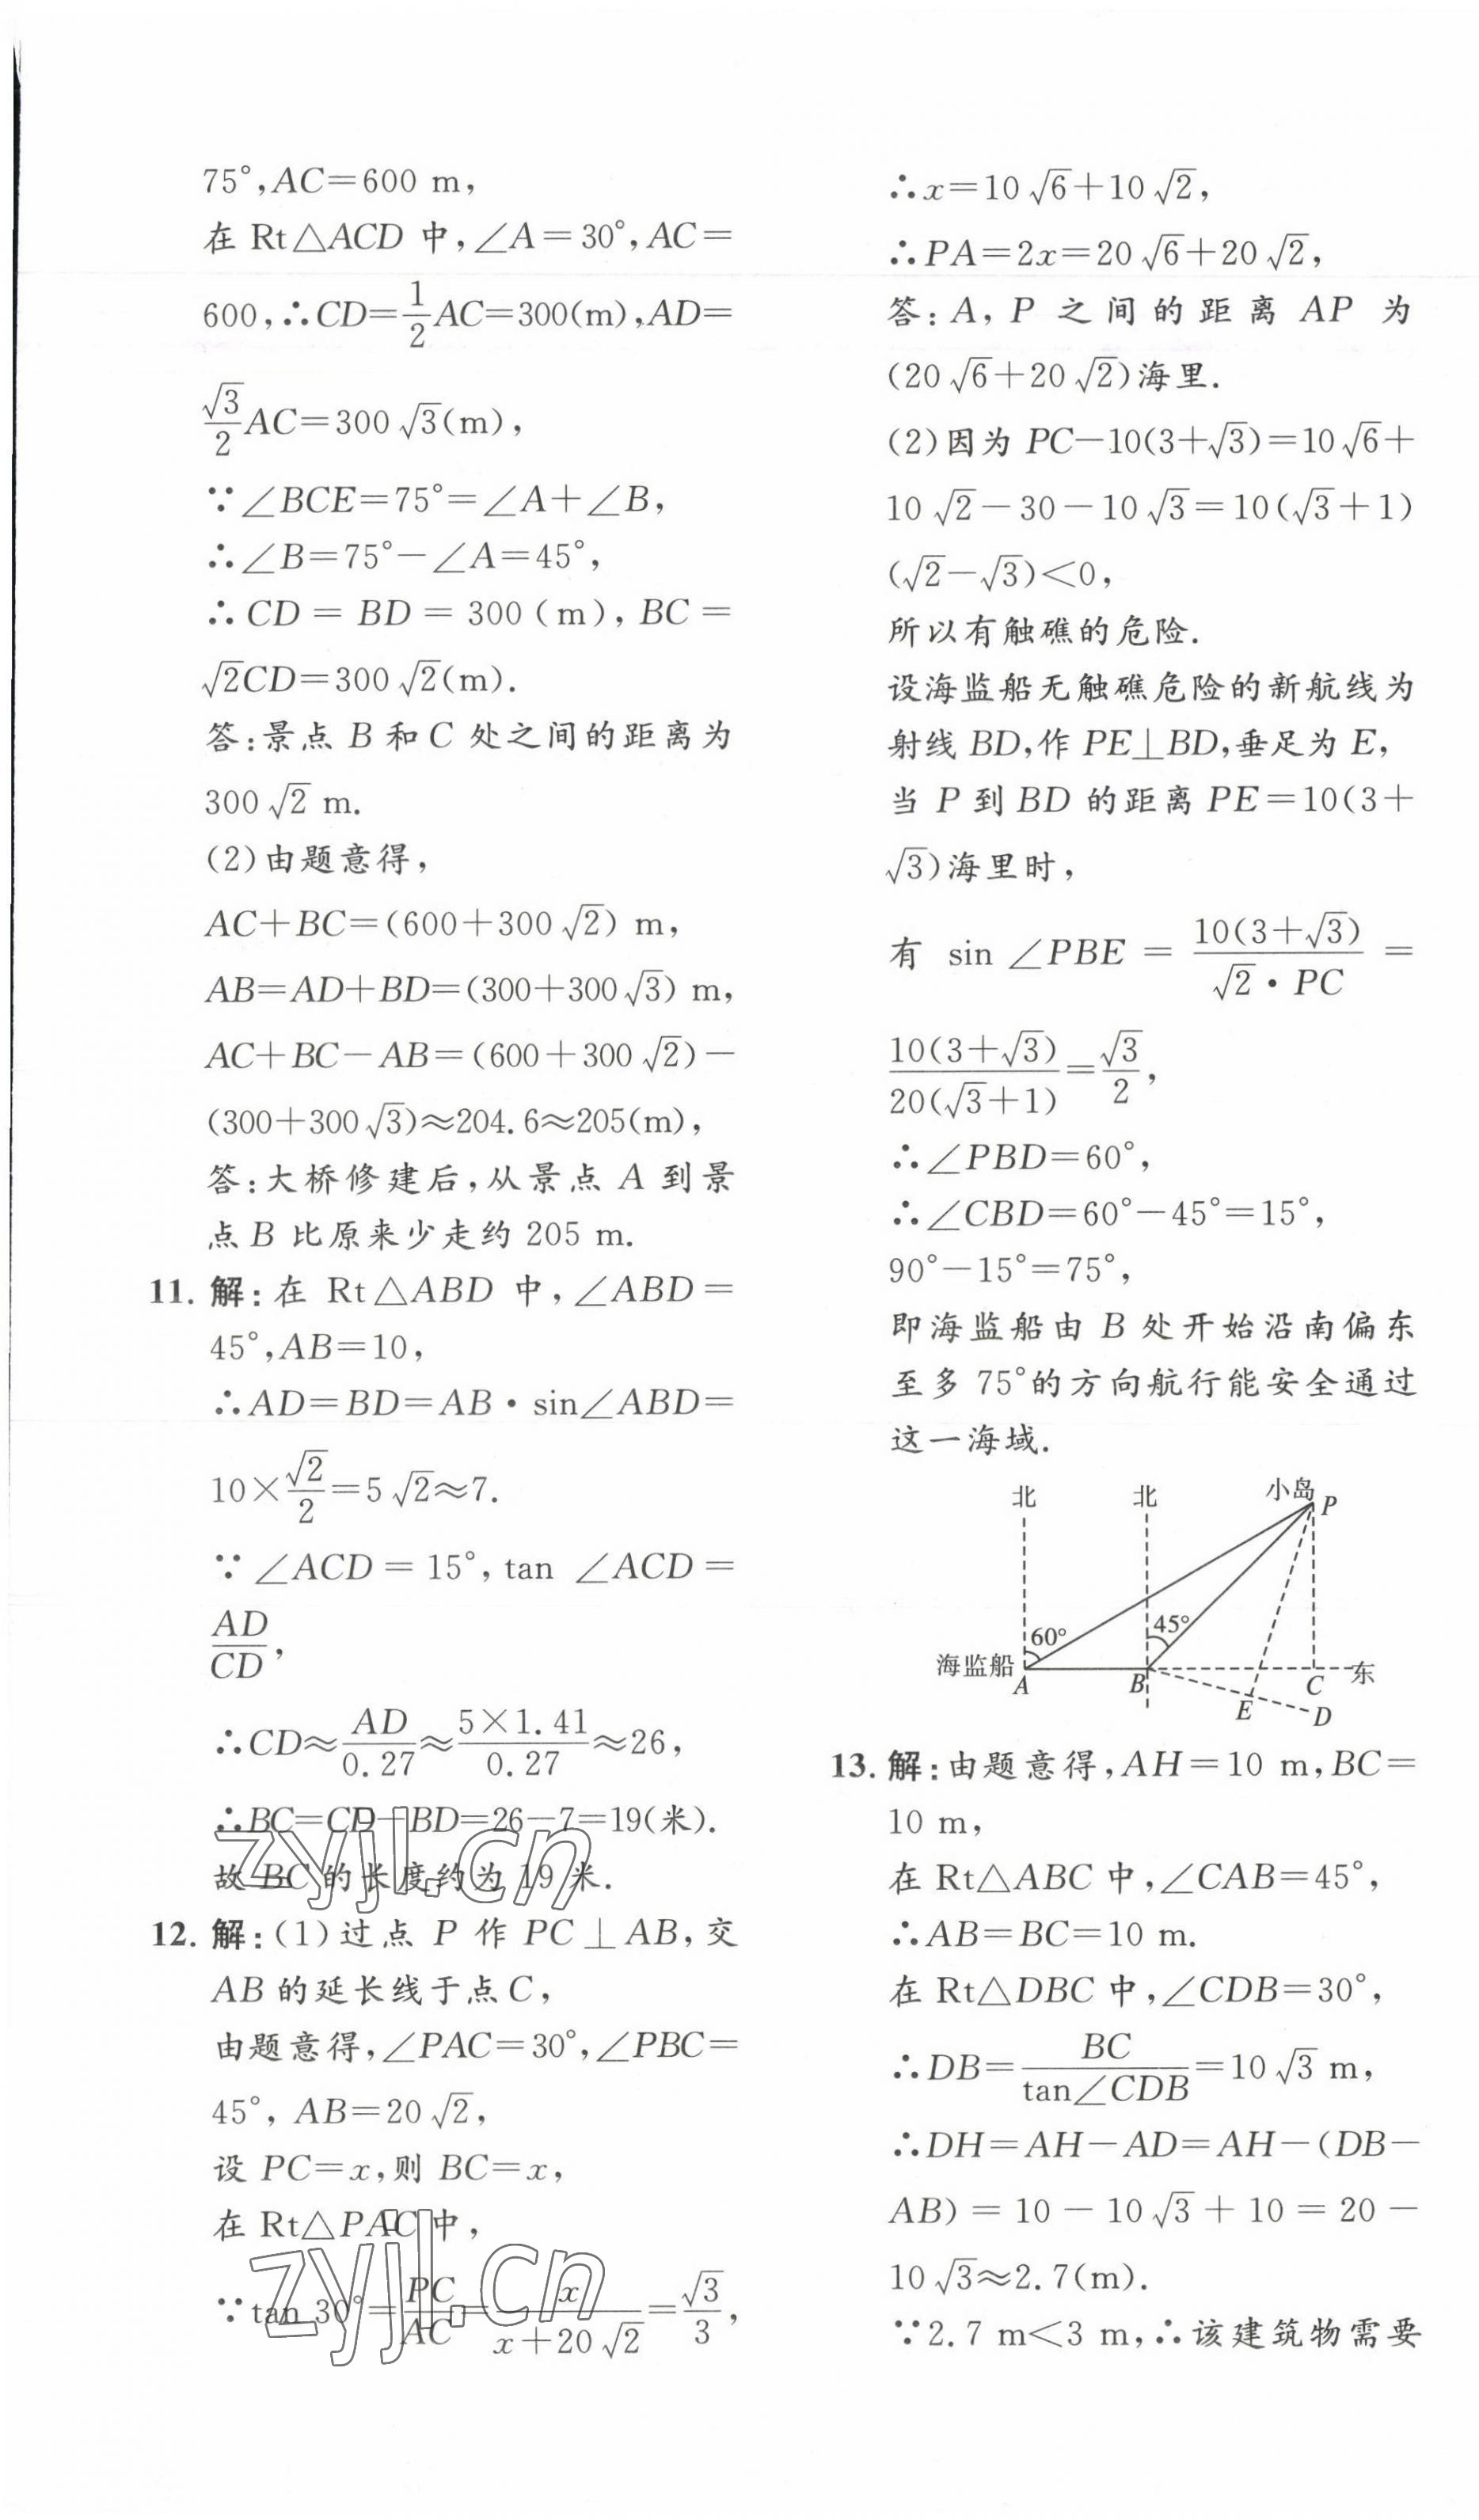 75°,AC=600 m,
在 Rt△ACD 中,∠A=30°,AC=
600,∴CD=\frac{1}{2}AC=300(m),AD=
\frac{√3}{2}AC=300√3(m),
∵∠BCE=75°=∠A+∠B,
∴∠B=75°-∠A=45°,
∴CD=BD=300(m),BC=
√2CD=300√2(m).
答:景点 B 和 C 处之间的距离为
300√2 m.
(2)由题意得,
AC+BC=(600+300√2) m,
AB=AD+BD=(300+300√3) m,
AC+BC-AB=(600+300√2)-
(300+300√3)≈204.6≈205(m),
答:大桥修建后,从景点 A 到景
点 B 比原来少走约 205 m.
11. 解:在 Rt△ABD 中,∠ABD=
45°,AB=10,
∴AD=BD=AB·sin∠ABD=
10×\frac{√2}{2}=5√2≈7.
∵∠ACD=15°,tan ∠ACD=
\frac{AD}{CD},
∴CD≈\frac{AD}{0.27}≈\frac{5×1.41}{0.27}≈26,
∴BC=CD-BD=26-7=19(米).
故 BC 的长度约为 19 米.
12. 解:(1)过点 P 作 PC⊥AB,交
AB 的延长线于点 C,
由题意得,∠PAC=30°,∠PBC=
45°, AB=20√2,
设 PC=x,则 BC=x,
在 Rt△PAC 中,
∵tan 30°=\frac{PC}{AC}=\frac{x}{x+20√2}=\frac{√3}{3},
zyjl.cn
zyjl.cn
∴x=10√6+10√2,
∴PA=2x=20√6+20√2,
答:A, P 之间的距离 AP 为
(20√6+20√2)海里.
(2)因为 PC-10(3+√3)=10√6+
10√2-30-10√3=10(√3+1)
(√2-√3)<0,
所以有触礁的危险.
设海监船无触礁危险的新航线为
射线 BD,作 PE⊥BD,垂足为 E,
当 P 到 BD 的距离 PE=10(3+
√3)海里时,
有 sin ∠PBE=\frac{10(3+√3)}{√2·PC}=
\frac{10(3+√3)}{20(√3+1)}=\frac{√3}{2},
∴∠PBD=60°,
∴∠CBD=60°-45°=15°,
90°-15°=75°,
即海监船由 B 处开始沿南偏东
至多 75°的方向航行能安全通过
这一海域.
北 北 小岛 P
60° 45°
海监船 A B C 东
E D
13. 解:由题意得,AH=10 m,BC=
10 m,
在 Rt△ABC 中,∠CAB=45°,
∴AB=BC=10 m.
在 Rt△DBC 中,∠CDB=30°,
∴DB=\frac{BC}{tan∠CDB}=10√3 m,
∴DH=AH-AD=AH-(DB-
AB)=10-10√3+10=20-
10√3≈2.7(m).
∵2.7 m<3 m,∴该建筑物需要